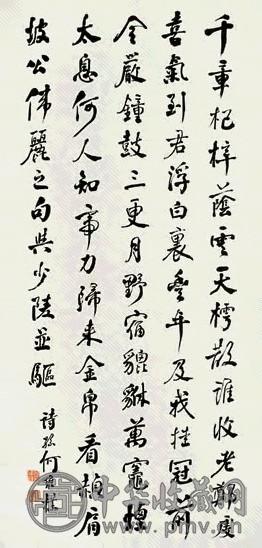 千章杞梓蔭雲天樗散誰收老鄭虔
喜氣到君浮白裏豐年及我挂冠前
令嚴鐘鼓三更月野宿貔貅萬竈煙
太息何人知帝力歸来金帛看赬肩
坡公偉麗之句與少陵並驅
詩孫何維樸
中华收藏网